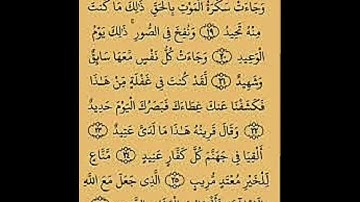 وَجَاءَتْ سَكْرَةُ الْمَوْتِ بِالْحَقِّ ذَٰلِكَ مَا كُنتَ
مِنْهُ تَحِيدُ ﴿١٩﴾ وَنُفِخَ فِي الصُّورِ ۚ ذَٰلِكَ يَوْمُ
الْوَعِيدِ ﴿٢٠﴾ وَجَاءَتْ كُلُّ نَفْسٍ مَّعَهَا سَائِقٌ
وَشَهِيدٌ ﴿٢١﴾ لَّقَدْ كُنتَ فِي غَفْلَةٍ مِّنْ هَٰذَا
فَكَشَفْنَا عَنكَ غِطَاءَكَ فَبَصَرُكَ الْيَوْمَ حَدِيدٌ
﴿٢٢﴾ وَقَالَ قَرِينُهُ هَٰذَا مَا لَدَيَّ عَتِيدٌ ﴿٢٣﴾
أَلْقِيَا فِي جَهَنَّمَ كُلَّ كَفَّارٍ عَنِيدٍ ﴿٢٤﴾ مَّنَّاعٍ
لِّلْخَيْرِ مُعْتَدٍ مُّرِيبٍ ﴿٢٥﴾ الَّذِي جَعَلَ مَعَ اللَّهِ